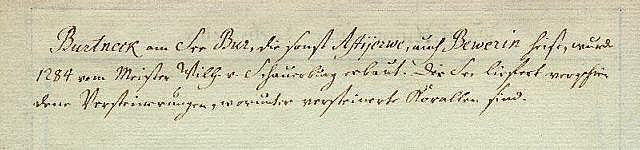 Burtneck am See Bur, die sonst Astijerwe, auch Bewerin heist, wurde
1284 vom Meister Wilh. v. Schauerburg erbaut. Der See liefert verschie-
dene Versteinerungen, worunter versteinerte Korallen sind.